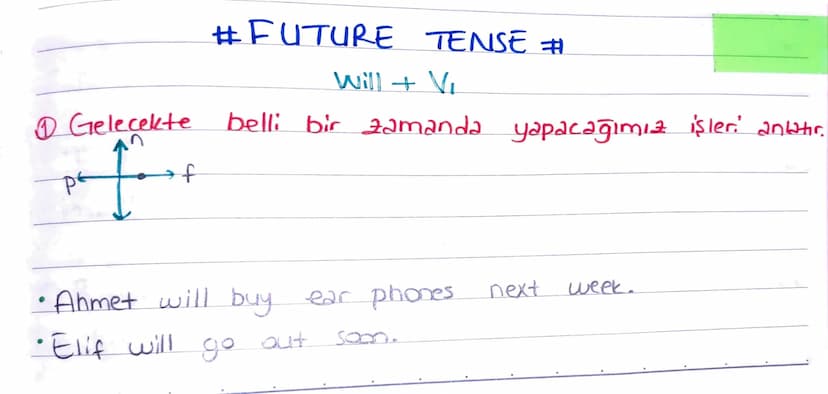 # FUTURE TENSE #
Will + V1
① Gelecekte belli bir zamanda yapacağımız işleri anlatır.
n
p f
• Ahmet will buy ear phones next week.
• Elif will go out soon.